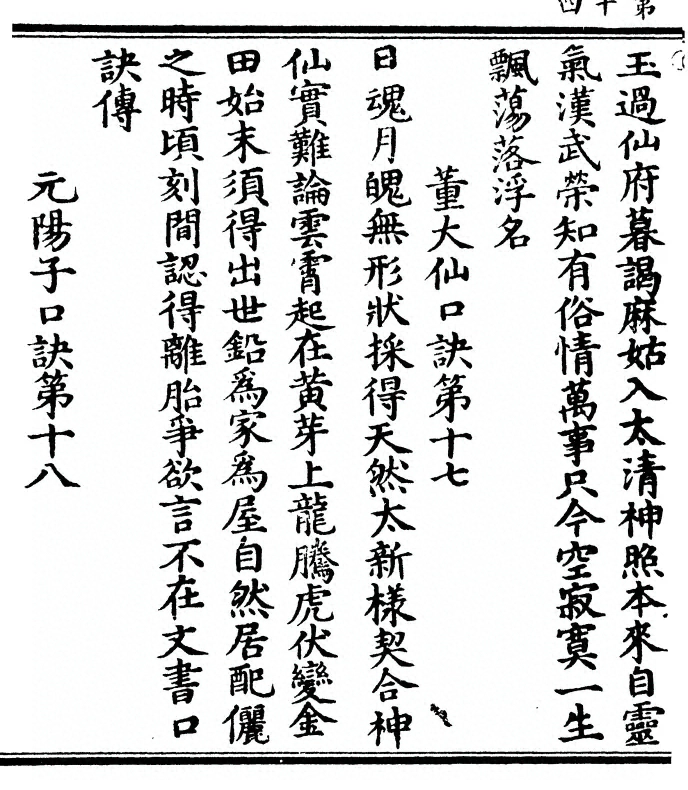 第十四
玉過仙府暮謁麻姑入太清神照本來自靈
氣漢武榮知有俗情萬事只今空寂寞一生
飄蕩落浮名
董大仙口訣第十七
日魂月魄無形狀採得天然太新樣契合神
仙實難論雲霄起在黃芽上龍騰虎伏變金
田始末須得出世鉛爲家爲屋自然居配儷
之時頃刻間認得離胎爭欲言不在文書口
訣傳
元陽子口訣第十八